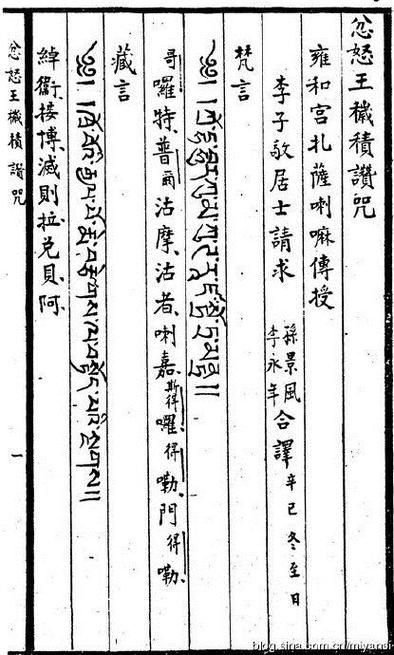 忿怒王穢積讚咒
雍和宮札薩喇嘛傳授
李子敬居士請求 孫景風 李永年 合譯 辛巳冬至日
梵言
哥囉特普爾沽摩沽者喇嘉斯得囉得嘞門得嘞
藏言
༄༅། །ཁྲོ་བོའི་རྒྱལ་པོ་སྨེ་བརྩེགས་ལ་བསྟོད་པའི་སྔགས།།
綽衞接博滅則拉兑貝阿
忿怒王穢積讚咒 一
blog.sina.com.cn/miyansi